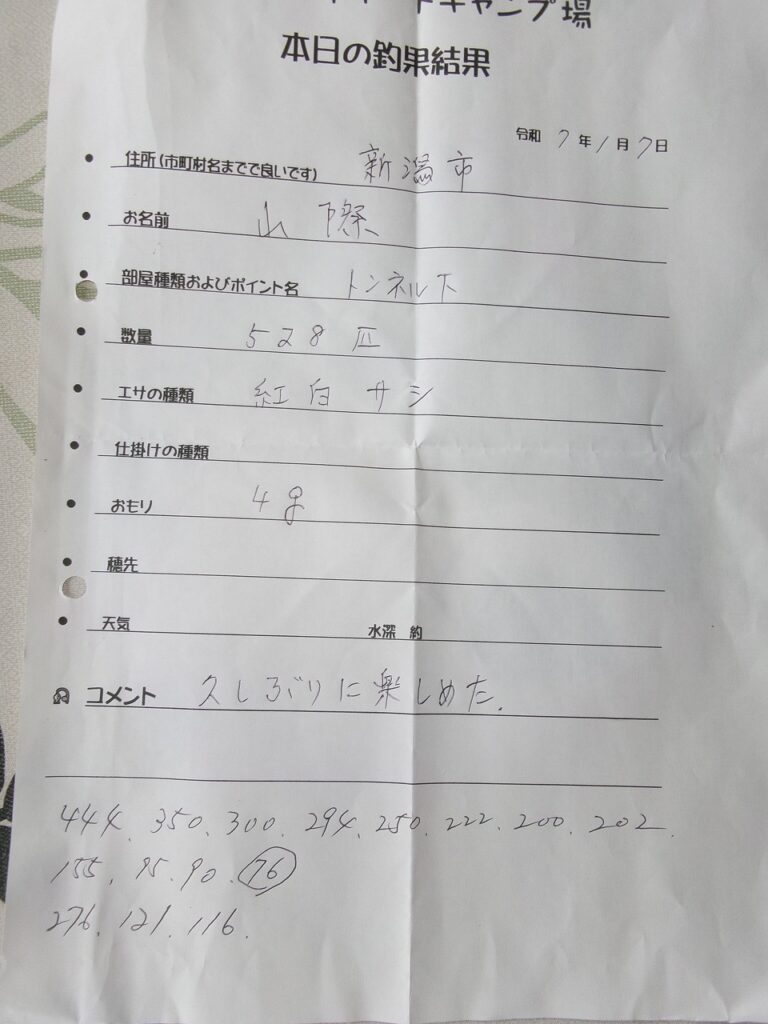 キャンプ場
本日の釣果結果
令和 7 年 1 月 7 日
住所(市町村名までで良いです) 新潟市
お名前 山際
部屋種類およびポイント名 トンネル下
数量 528 匹
エサの種類 紅白サシ
仕掛けの種類
おもり 4g
穂先
天気 水深 約
コメント 久しぶりに楽しめた.
444. 350. 300. 294. 250. 222. 200. 202.
155. 95. 90. 76
276. 121. 116.